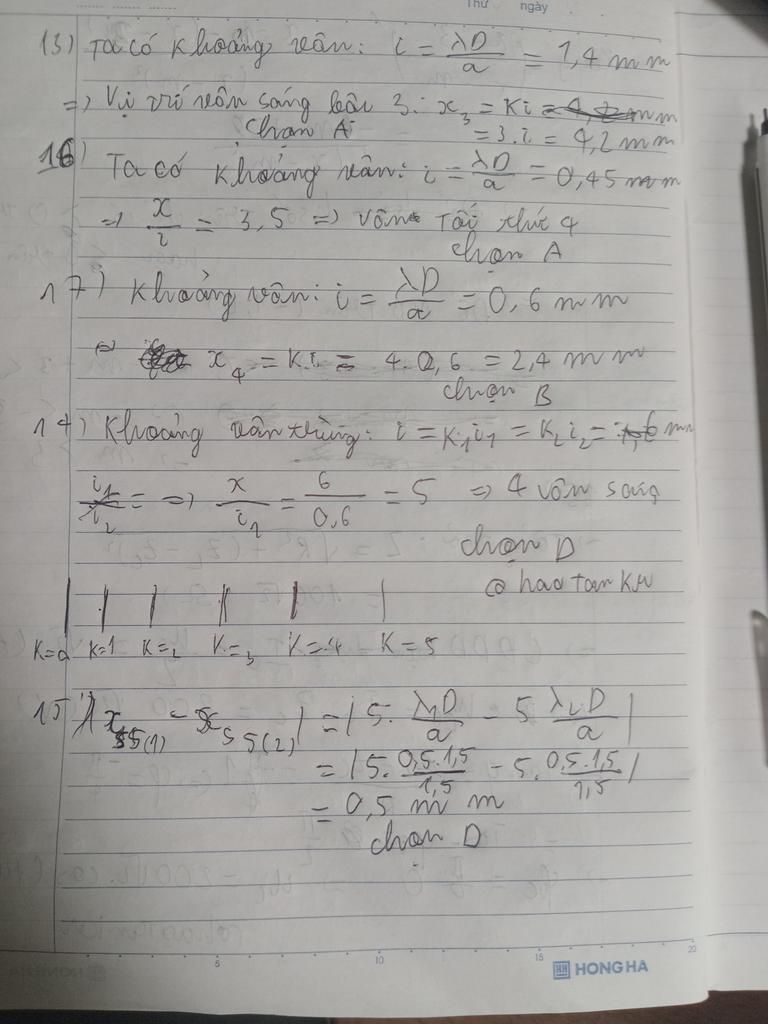 Thứ ngày
13) Ta có khoảng vân: i = λD/a = 1,4 mm
=> Vị trí vân sáng bậc 3: x₃ = Ki
= 3.i = 4,2 mm
chọn A
16) Ta có khoảng vân: i = λD/a = 0,45 mm
=> x/i = 3,5 => vân Tối thứ 4
chọn A
17) Khoảng vân: i = λD/a = 0,6 mm
=> x₄ = K.i = 4.0,6 = 2,4 mm
chọn B
14) Khoảng vân trùng: i = K₁i₁ = K₂i₂ =
=> x/i₁ = 6/0,6 = 5 => 4 vân sáng
chọn D
@ haotankw
K=0 K=1 K=2 K=3 K=4 K=5
15) |x s5(1) - x s5(2)| = |5. λ₁D/a - 5 λ₂D/a|
= |5. 0,5.1,5/1,5 - 5. 0,5.1,5/1,5|
= 0,5 mm
chọn D
5 10 15 20
HH HONG HA